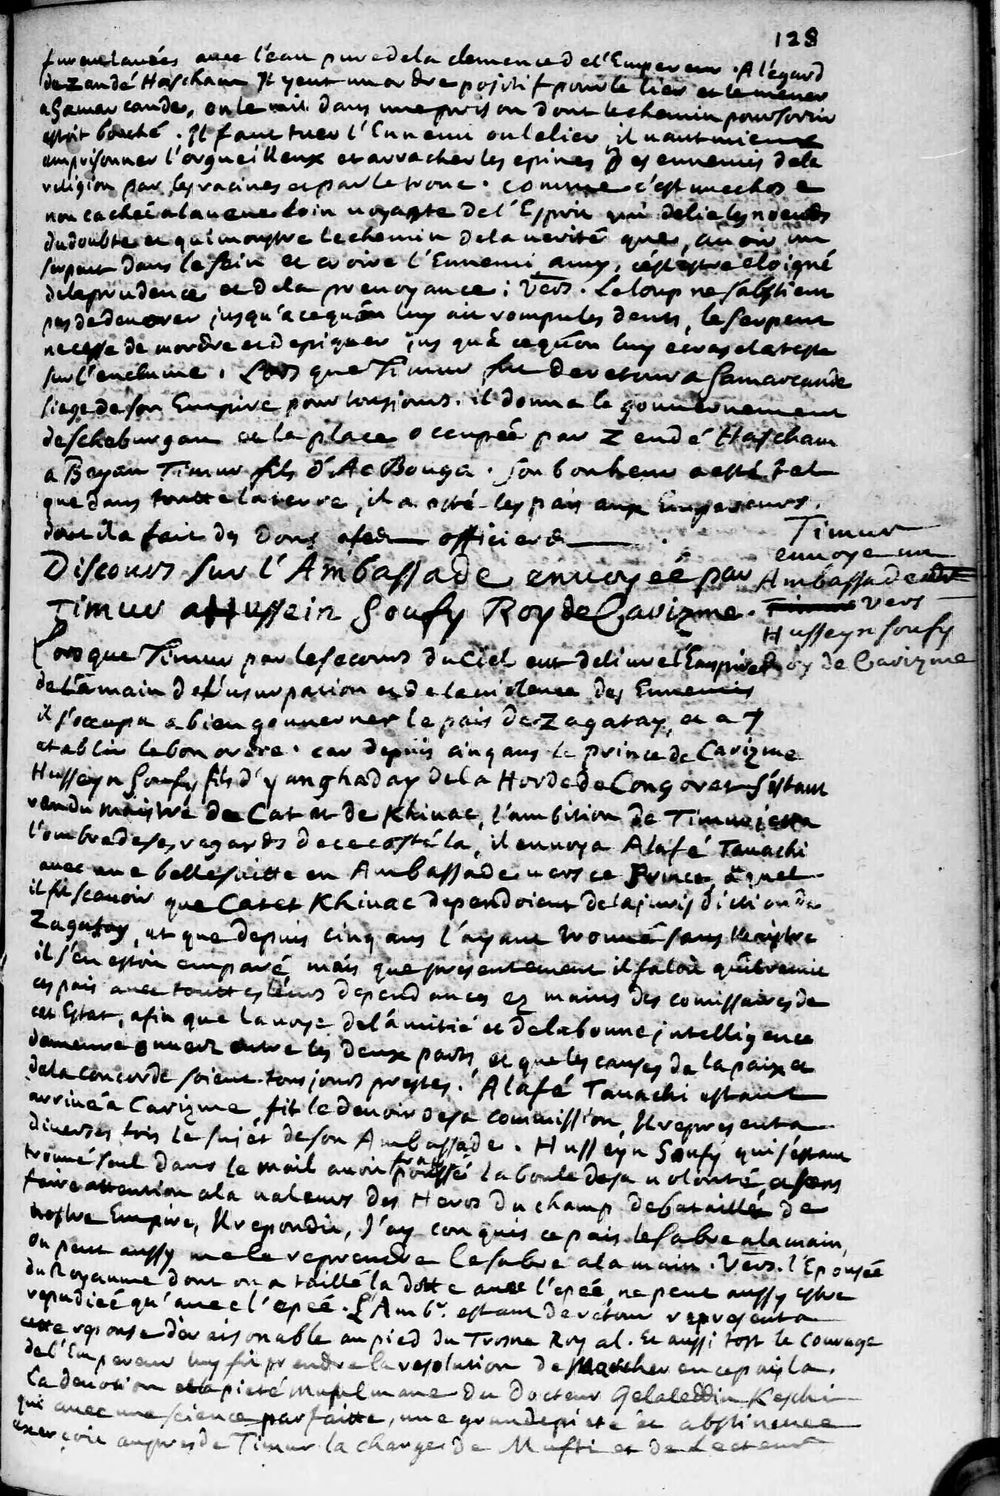 128
furent lavées avec l'eau pure de la clemence de l'Empereur. A l'égard
de Zandé Hascham Il y eut un ordre positif pour le lier et le mener
a Samarcande, on le mit dans une prison dont le chemin pour sortir
estoit bouché. Il faut tuer l'Ennemi ou le lier, il vaut mieux
emprisonner l'orgueilleux et arracher les epines des ennemis de la
religion par les racines et par le tronc. comme c'est une chose
non cachée a la veue loin voyante de l'Esprit qui delie les noeuds
du doubte et qui monstre le chemin de la verité que, avoir un
serpent dans le sein et croire l'Ennemi amy, c'est estre eloigné
de la prudence et de la prevoyance: Vers. Le loup ne s'abstient
pas de devorer jusqu'a ce qu'on luy ait rompu les dents, le serpent
ne cesse de mordre et de piquer jusqu'à ce qu'on luy ecrase la teste
sur l'enclume. Lors que Timur fut de retour a Samarcande
siege de son Empire pour tousjours. il donna le gouvernement
de Scheburgan et la place occupée par Zendé Hascham
a Bayan Timur fils d'Ac Bouga. son bonheur a esté tel
que dans toutte la terre, il a osté les pais aux Empereurs,
dont il a fait des Dons a ses officiers.
Discours sur l'Ambassade envoyée par
Timur a Hussein Soufy Roy de Carizme.
Timur
envoye un
Ambassadeur
vers
Husseyn Soufy
Roy de Carizme
Lors que Timur par le secours du Ciel eut delivré l'Empire
de la main de l'usurpation et de la violence des Ennemis
il s'occupa a bien gouverner le pais de Zagatay, et a y
etablir le bon ordre. car depuis cinq ans le prince de Carizme
Husseyn Soufy fils d'Yanghaday de la Horde de Congorat s'estant
rendu maistre de Cat et de Khivac, l'ambition de Timur jetta
l'ombre de ses regards de ce costé la, il envoya Alafé Tavachi
avec une belle suitte en Ambassade vers ce Prince auquel
il fit scavoir que Cat et Khivac dependoient de la jurisdiction de
Zagatay, et que depuis cinq ans l'ayant trouvé sans Maistre
il s'en estoit emparé, mais que presentement il faloit qu'il remit
ces pais avec touttes leurs dependances ez mains des comissaires de
cet Estat, afin que la voye de l'amitié et de la bonne intelligence
demeure ouverte entre les deux parts, et que les causes de la paix et
de la concorde soient tousjours prestes. Alafé Tavachi estant
arrivé a Carizme, fit le devoir de sa commission, Il representa
diverses fois le sujet de son Ambassade. Husseyn Soufy qui s'estant
trouvé seul dans le mail avoit poussé la boule de sa volonté, sans
faire attention a la valeur des Heros du champ de bataille de
nostre Empire, Il repondit, J'ay conquis ce pais le sabre a la main,
on peut aussy me le reprendre le sabre a la main. Vers. l'Epousée
du Royaume dont on a taillé la dotte avec l'epée, ne peut aussy estre
repudiée qu'avec l'epée. L'Amb.r estant de retour representa
cette reponse deraisonable au pied du Trosne Royal. Et aussi tost le courage
de l'Empereur luy fit prendre la resolution de Marcher en ce pais la.
La devotion et la pieté musulmane du Docteur Gelaleddin Keschi
qui avec une science parfaitte, une grande pieté et abstinence
exerçoit aupres de Timur la charge de Mufti et de Lecteur